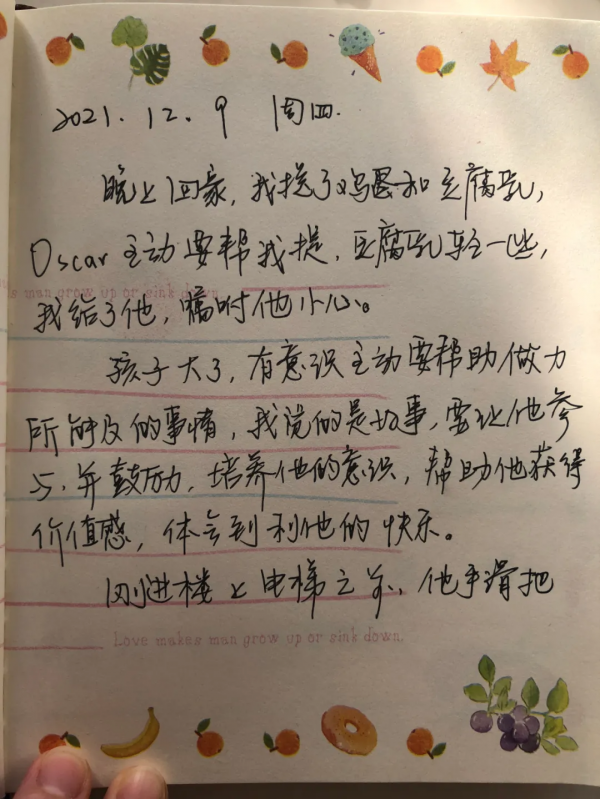 2021.12.9 周四.
晚上回家,我提了鸡蛋和豆腐乳,
Oscar主动要帮我提,豆腐乳轻一些,
man grow up or sink down
我给了他,嘱咐他小心。
孩子大了,有意识主动要帮助做力
所能及的事情,我觉的是好事,要让他参
与,并鼓励,培养他的意识,帮助他获得
价值感,体会到利他的快乐。
刚进楼上电梯之前,他手滑把
Love makes man grow up or sink down.